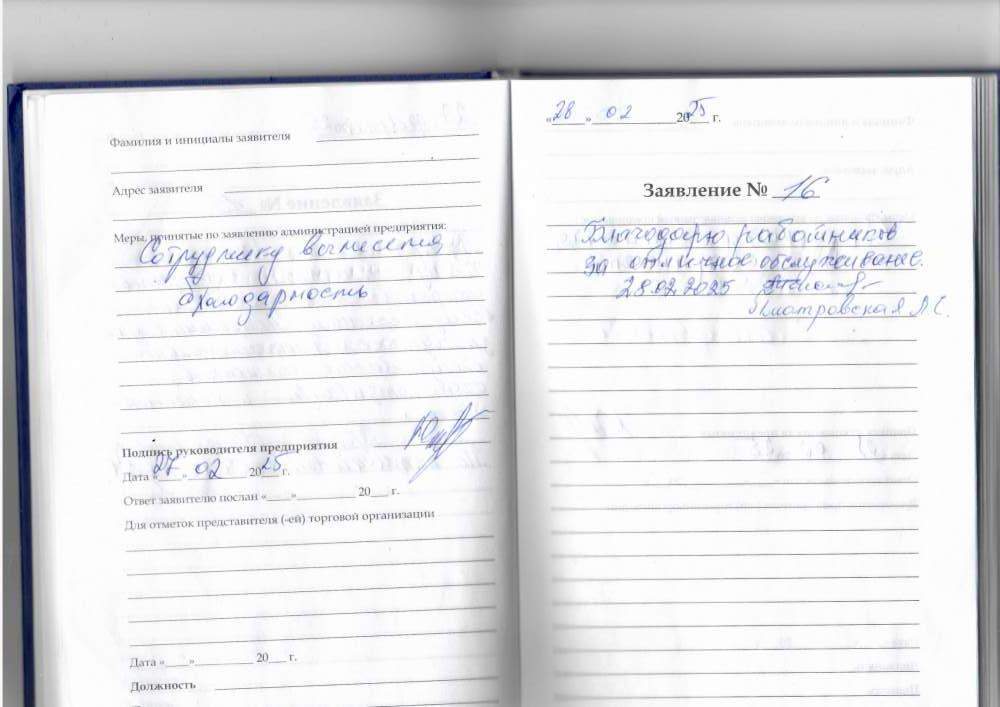 Фамилия и инициалы заявителя
Адрес заявителя
Меры, принятые по заявлению администрацией предприятия:
Сотруднику вынесена
благодарность
Подпись руководителя предприятия
Дата «27» 02 2025 г.
Ответ заявителю послан «____»__________ 20___ г.
Для отметок представителя (-ей) торговой организации
Дата «____»__________ 20___ г.
Должность
«28» 02 2025 г.
Заявление № 16
Благодарю работников
за отличное обслуживание.
28.02.2025
Л.С.